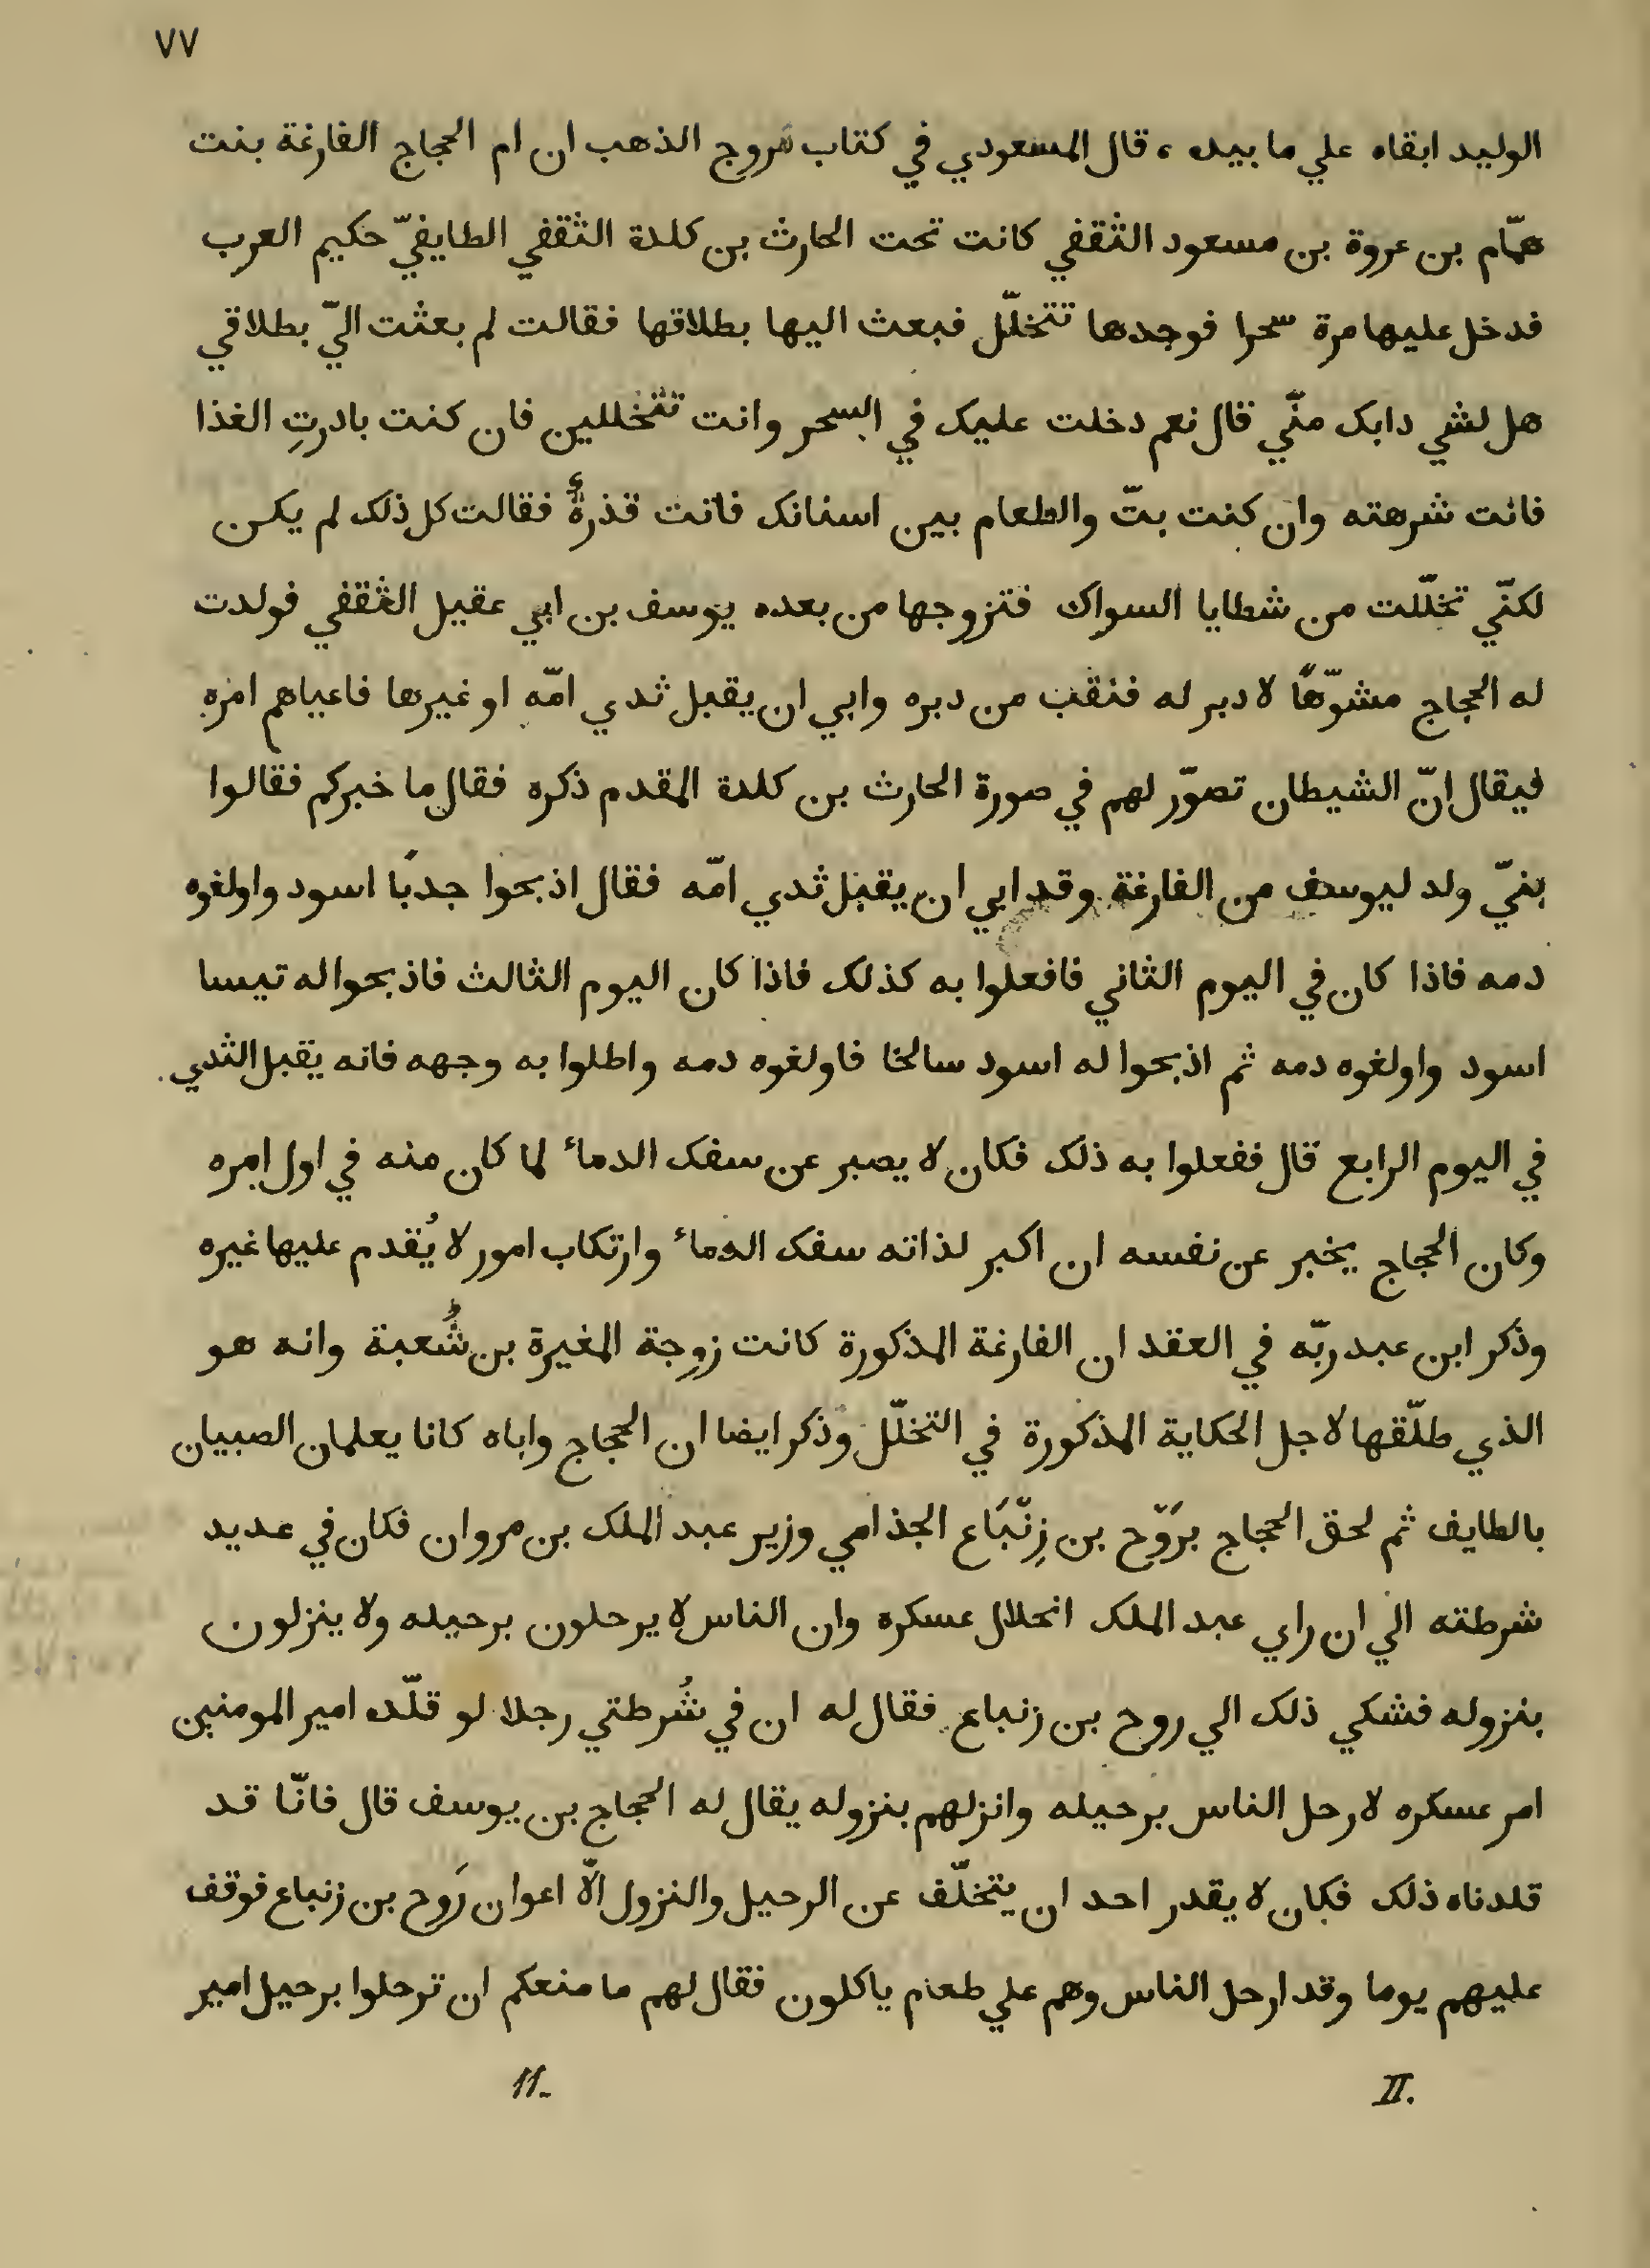 ٧٧
الوليد ابقاه علي ما بيده ، قال المسعودي في كتاب مروج الذهب ان ام الحجاج الفارغة بنت
همّام بن عروة بن مسعود الثقفي كانت تحت الحارث بن كلدة الثقفي الطايفيّ حكيم العرب
فدخل عليها مرة سحرا فوجدها تتخلّل فبعث اليها بطلاقها فقالت لم بعثت اليّ بطلاقي
هل لشي دابك منّي قال نعم دخلت عليك في السحر وانت تتخللين فان كنت بادرتِ الغذا
فانت شرهته وان كنت بتّ والطعام بين اسنانك فانت قذرةٌ فقالت كل ذلك لم يكن
لكنّي تخلّلت من شطايا السواك فتزوجها من بعده يوسف بن ابي عقيل الثقفي فولدت
له الحجاج مشوّهًا لا دبر له فنقب من دبره وابي ان يقبل ثدي امّه او غيرها فاعياهم امره
فيقال انّ الشيطان تصوّر لهم في صورة الحارث بن كلدة المقدم ذكره فقال ما خبركم فقالوا
بنيّ ولد ليوسف من الفارغة وقد ابي ان يقبل ثدي امّه فقال اذبحوا جديًا اسود واولغوه
دمه فاذا كان في اليوم الثاني فافعلوا به كذلك فاذا كان اليوم الثالث فاذبحوا له تيسا
اسود واولغوه دمه ثم اذبحوا له اسود سالخا فاولغوه دمه واطلوا به وجهه فانه يقبل الثدي
في اليوم الرابع قال ففعلوا به ذلك فكان لا يصبر عن سفك الدماء لما كان منه في اول امره
وكان الحجاج يخبر عن نفسه ان اكبر لذاته سفك الدماء وارتكاب امور لا يُقدم عليها غيره
وذكر ابن عبد ربّه في العقد ان الفارغة المذكورة كانت زوجة المغيرة بن شُعبة وانه هو
الذي طلّقها لاجل الحكاية المذكورة في التخلّل وذكر ايضا ان الحجاج واباه كانا يعلمان الصبيان
بالطايف ثم لحق الحجاج برَوْح بن زِنْبَاع الجذامي وزير عبد الملك بن مروان فكان في عديد
شرطته الي ان راي عبد الملك انحلال عسكره وان الناس لا يرحلون برحيله ولا ينزلون
بنزوله فشكي ذلك الي روح بن زنباع فقال له ان في شُرطتي رجلا لو قلّده امير المومنين
امر عسكره لارحل الناس برحيله وانزلهم بنزوله يقال له الحجاج بن يوسف قال فانّا قد
قلدناه ذلك فكان لا يقدر احد ان يتخلّف عن الرحيل والنزول الّا اعوان رَوح بن زنباع فوقف
عليهم يوما وقد ارحل الناس وهم علي طعام ياكلون فقال لهم ما منعكم ان ترحلوا برحيل امير
II. 11-